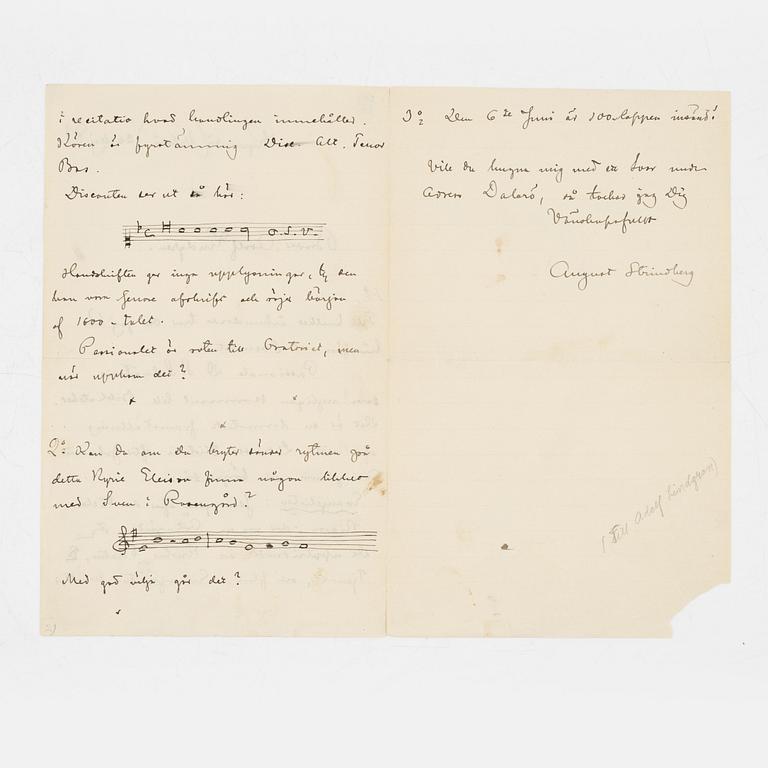 i recitativ hvad handlingen innehåller.
Kören är fyrstämmig Disc. Alt. Tenor
Bas.
Discanten ser ut så här:
o.s.v.
Handskriften ger inga upplysningar, ty den
kan vara senare afskrift och röja början
af 1600-talet.
Passionalet är roten till Oratoriet, men
när uppkom det?
2o: Kan du om du bryter sönder rytmen på
detta Kyrie Eleison finna någon likhet
med Sven i Rosengård?
Med god vilja går det?
3o: Den 6te Juni är 100-lappen insänd!
Vill du hugna mig med ett svar under
adress Dalarö, så tackar jag Dig
Vänskapsfullt
August Strindberg
(Till Adolf Lindgren)